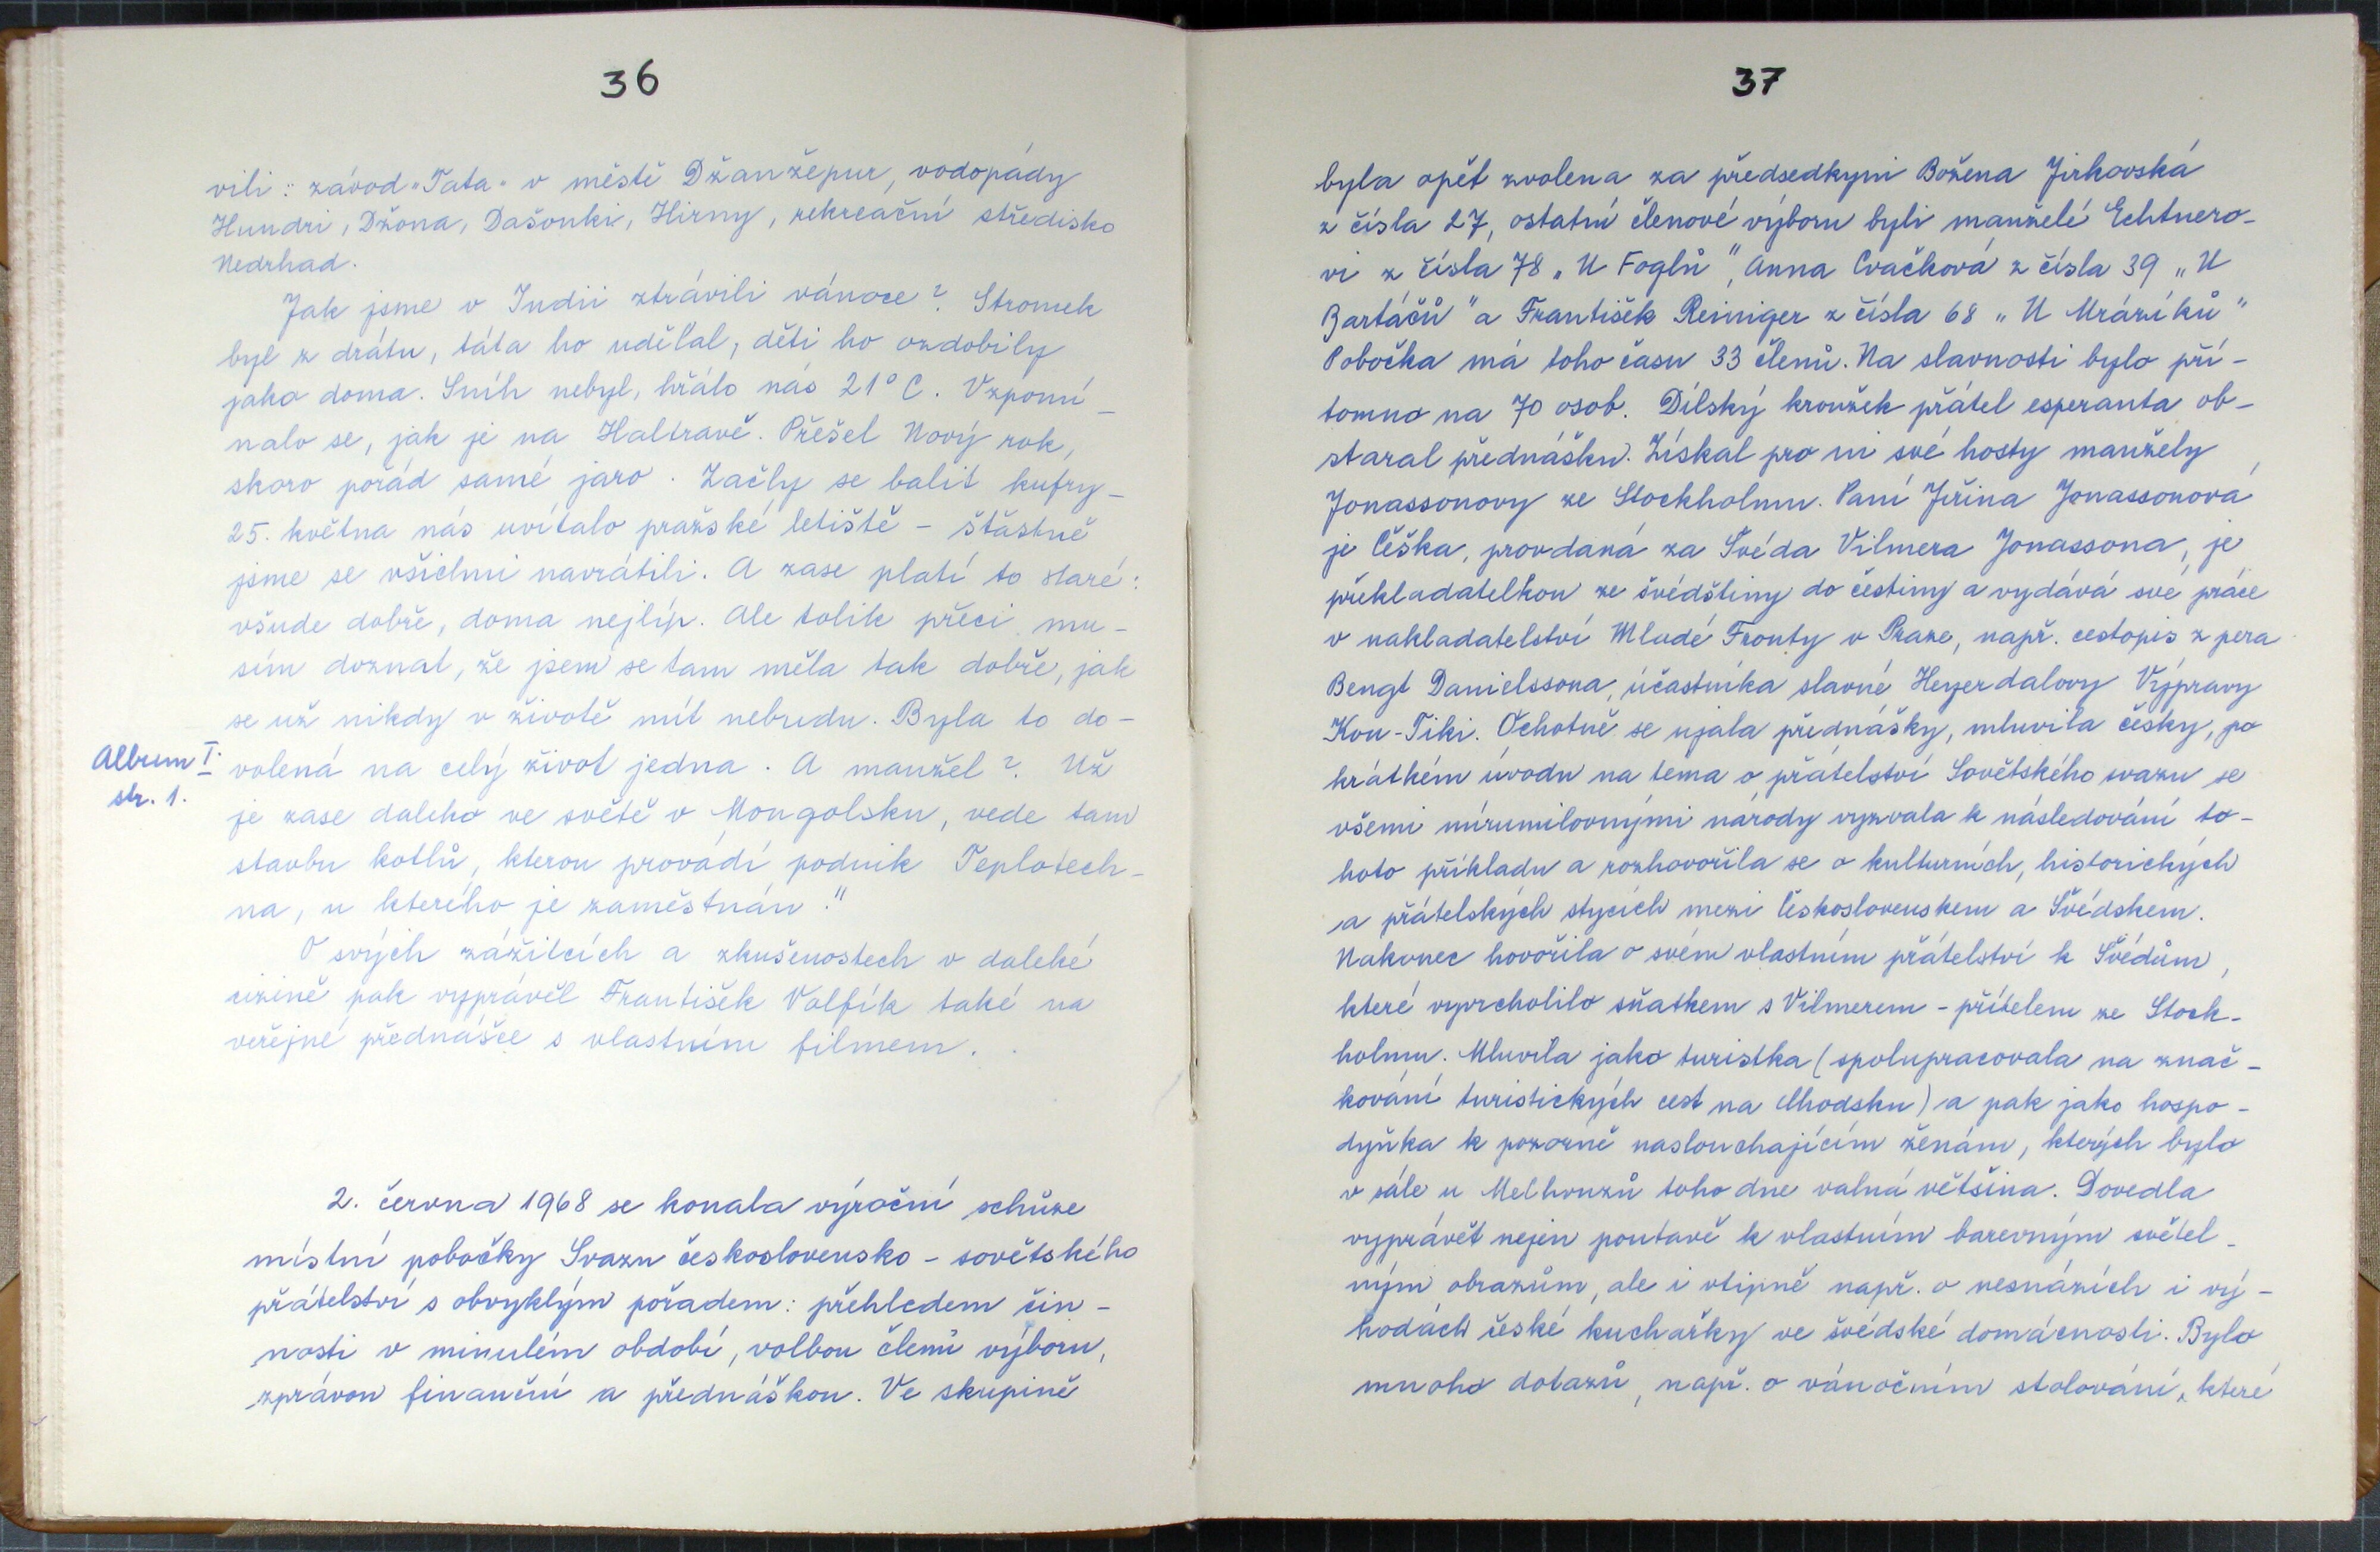 36
vili: závod "Tata" v městě Džanžepur, vodopády
Hundri, Džona, Dašonki, Hirny, rekreační středisko
Nedrhad.
Jak jsme v Indii ztrávili vánoce? Stromek
byl z drátu, táta ho udělal, děti ho ozdobily
jako doma. Sníh nebyl, hřálo nás 21°C. Vzpomí_
nalo se, jak je na Haltravě. Přešel Nový rok,
skoro pořád samé jaro. Začly se balit kufry_
25. května nás uvítalo pražské letiště - šťastně
jsme se všichni navrátili. A zase platí to staré:
všude dobře, doma nejlíp. Ale tolik přeci mu-
sím doznat, že jsem se tam měla tak dobře, jak
se už nikdy v životě mít nebudu. Byla to do-
Album I.
str. 1.
volená na celý život jedna. A manžel? Už
je zase daleko ve světě v Mongolsku, vede tam
stavbu kotlů, kterou provádí podnik Teplotech-
na, u kterého je zaměstnán."
O svých zážitcích a zkušenostech v daleké
cizině pak vyprávěl František Volfík také na
veřejné přednášce s vlastním filmem.
2. června 1968 se konala výroční schůze
místní pobočky Svazu československo - sovětského
přátelství s obvyklým pořadem: přehledem čin-
nosti v minulém období, volbou členů výboru,
zprávou finanční a přednáškou. Ve skupině
37
byla opět zvolena za předsedkyni Božena Jirkovská
z čísla 27, ostatní členové výboru byli manželé Echtnero-
vi z čísla 78 „U Foglů", Anna Cvačková z čísla 39 „U
Bartáčů" a František Reiniger z čísla 68 „U Mrázíků"
Pobočka má toho času 33 členů. Na slavnosti bylo pří-
tomno na 70 osob. Dílský kroužek přátel esperanta ob-
staral přednášku. Získal pro ni své hosty manžely
Jonassonovy ze Stockholmu. Paní Jiřina Jonassonová,
je Češka, provdaná za Švéda Vilmera Jonassona, je
překladatelkou ze švédštiny do češtiny a vydává své práce
v nakladatelství Mladé Fronty v Praze, např. cestopis z pera
Bengt Danielssona, účastníka slavné Heyerdalovy Výpravy
Kon-Tiki. Ochotně se ujala přednášky, mluvila česky, po
krátkém úvodu na tema o přátelství Sovětského svazu se
všemi mírumilovnými národy vyzvala k následování to-
hoto příkladu a rozhovořila se o kulturních, historických
a přátelských stycích mezi Československem a Švédskem.
Nakonec hovořila o svém vlastním přátelství k Švédům,
které vyvrcholilo sňatkem s Vilmerem - přítelem ze Stock-
holmu. Mluvila jako turistka (spolupracovala na znač-
kování turistických cest na Chodsku) a pak jako hospo-
dyňka k pozorně naslouchajícím ženám, kterých bylo
v sále u Melhouzů toho dne valná většina. Dovedla
vyprávět nejen poutavě k vlastním barevným světel_
ným obrazům, ale i vtipně např. o nesnázích i vý-
hodách české kuchařky ve švédské domácnosti. Bylo
mnoho dotazů, např. o vánočním stolování, které